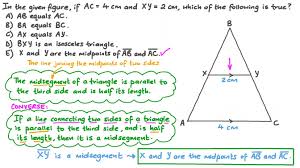 In the given figure, if AC = 4 cm and XY = 2 cm, which of the following is true?
A) AB equals AC.
B) BA equals BC.
C) AX equals AY.
D) BXY is an isosceles triangle.
E) X and Y are the midpoints of AB and BC.
The line joining the midpoints of two sides
The midsegment of a triangle is parallel to
the third side and is half its length.
CONVERSE:
If a line connecting two sides of a triangle
is parallel to the third side, and is half
its length, then it is a midsegment.
XY is a midsegment → X and Y are the midpoints of AB and BC
B
X
Y
2 cm
A
4 cm
C